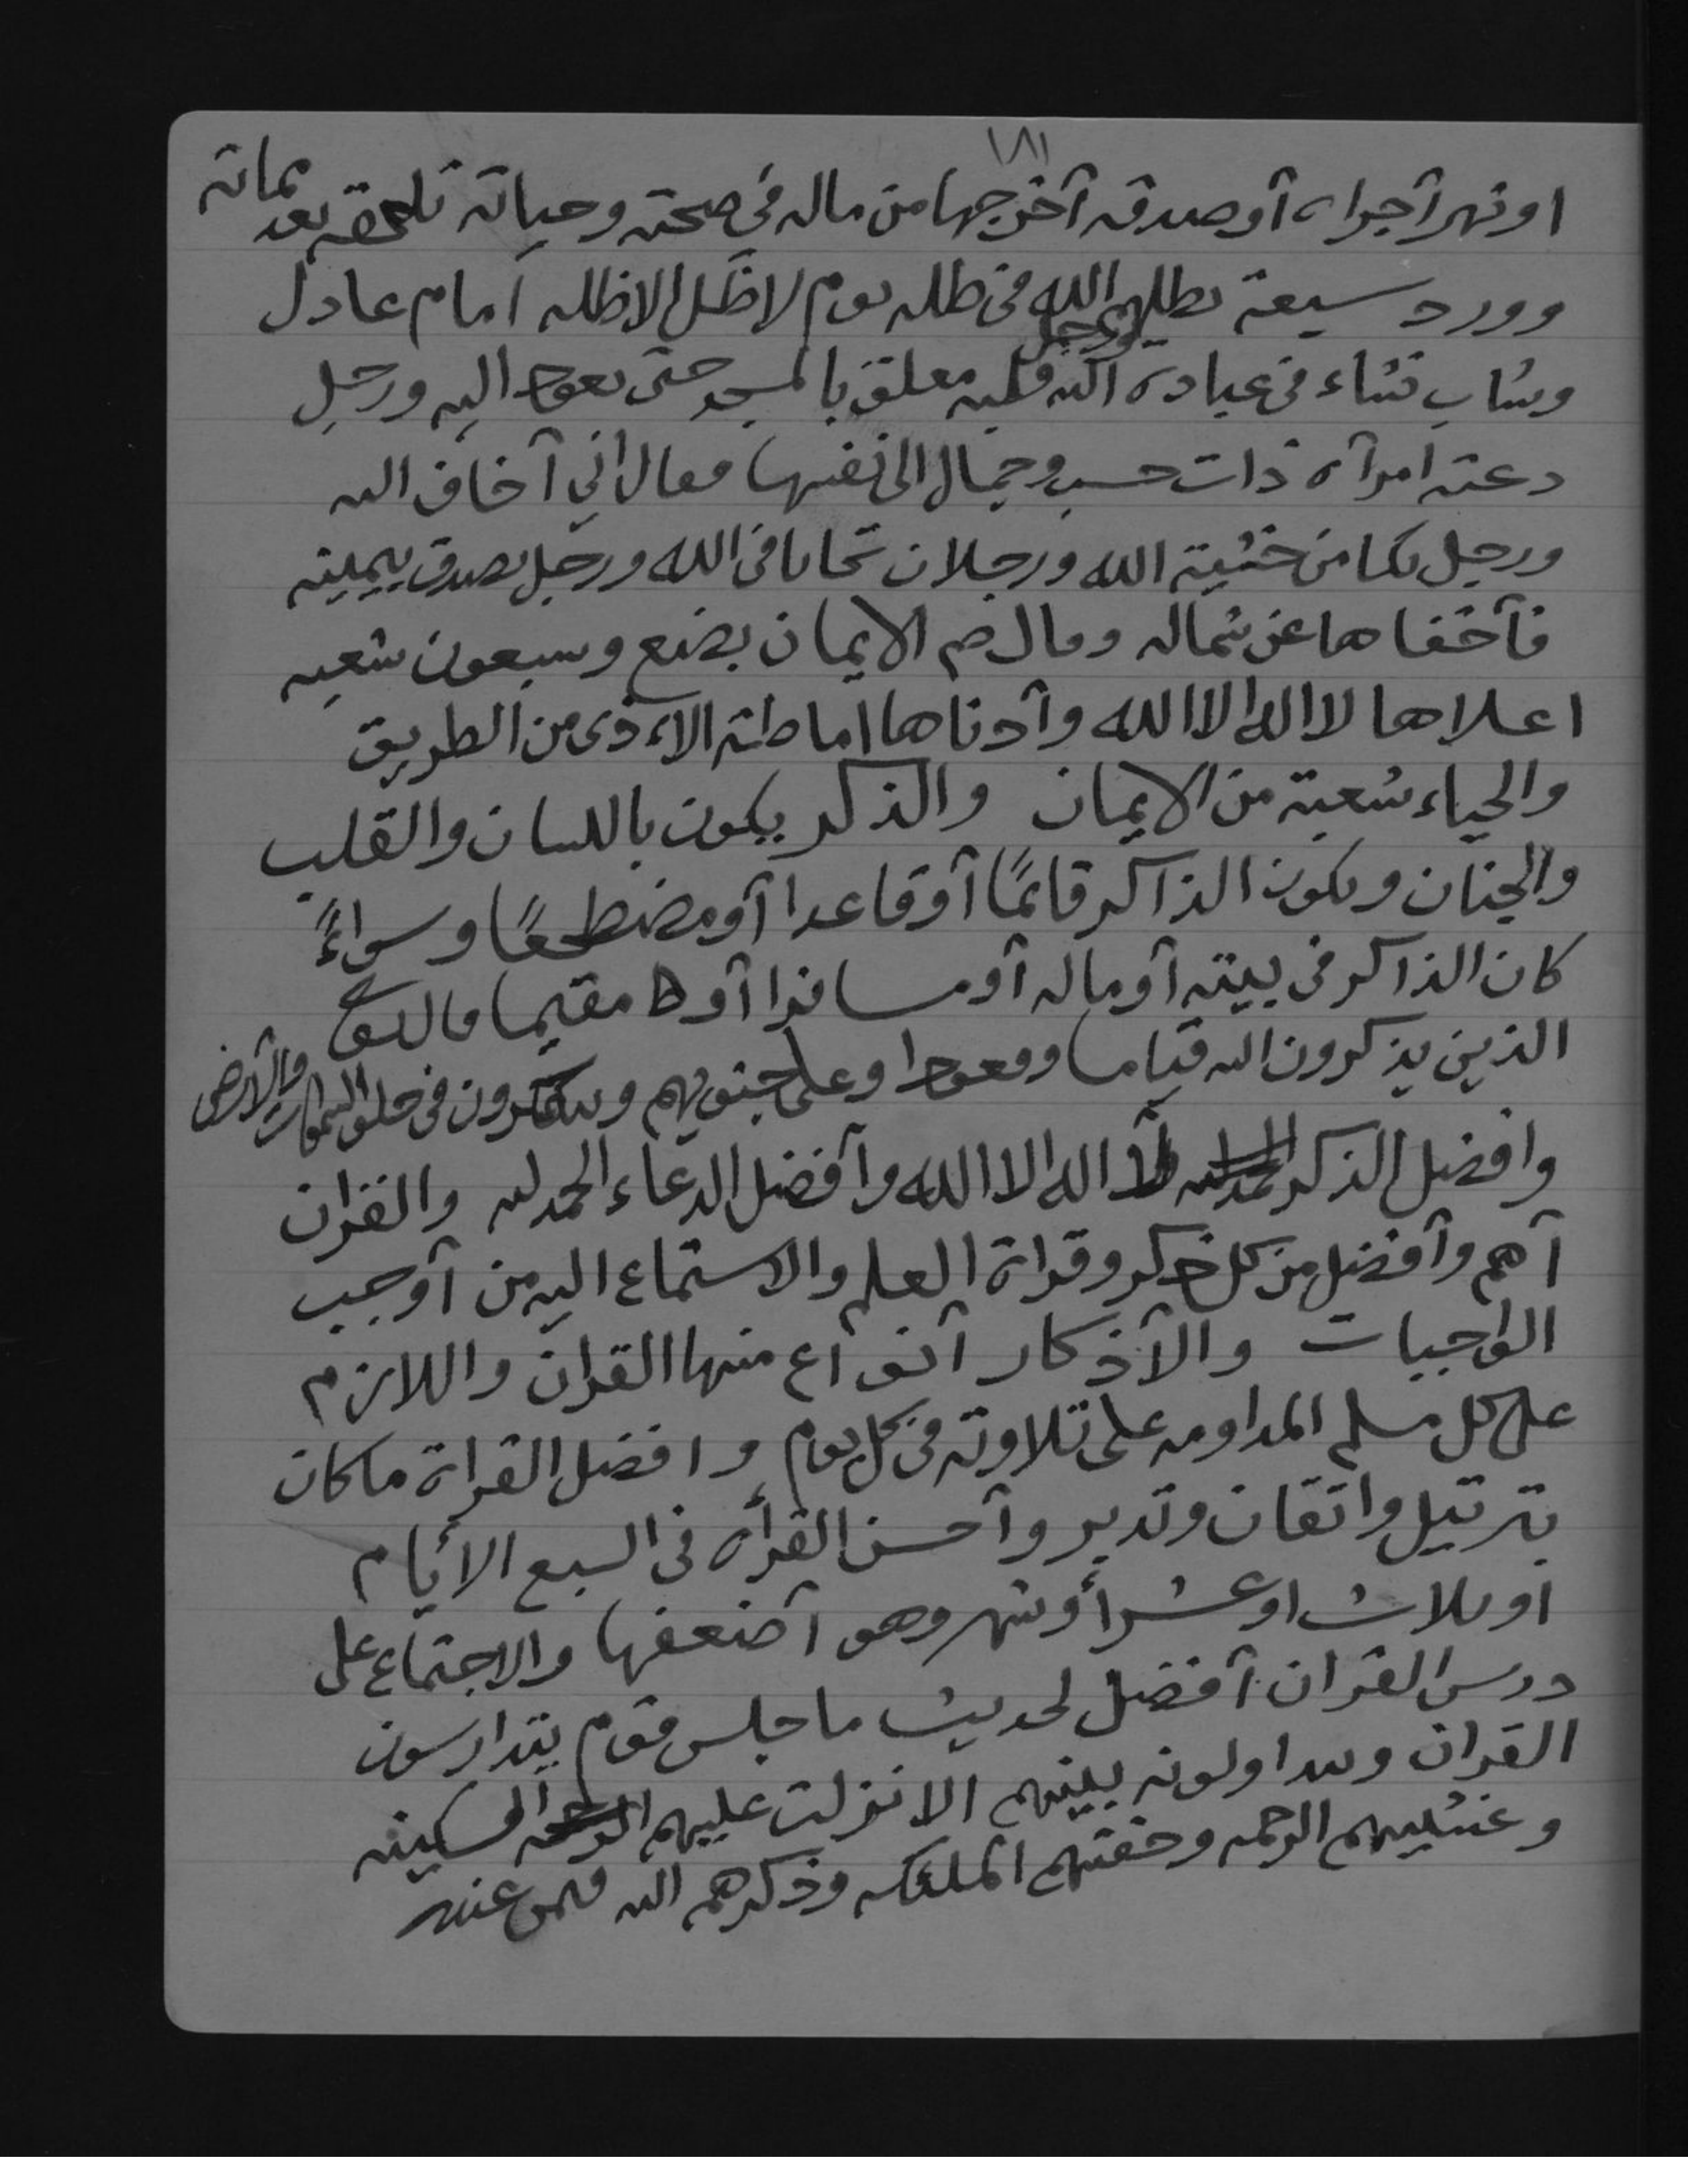 ١٨١
او نهر آجراه آو صدقه آخرجها من ماله في صحته وحياته تلحقه بعد مماته
وورد سبعة يظلهم الله في ظله يوم لا ظل الا ظله امام عادل
وشاب نشاء في عبادة الله ورجل قلبه معلق بالمسجد حتى يعود اليه ورجل
دعته امرآه ذات حسب وجمال الى نفسها فقال اني آخاف الله
ورجل بكا من خشية الله ورجلان تحابا في الله ورجل تصدق بيمينه
فآخفاها عن شماله وقال صم الايمان بضع وسبعون شعبه
اعلاها لا اله الا الله وآدناها اماطته الاءذى من الطريق
والحياء شعبة من الايمان والذكر يكون باللسان والقلب
والجنان ويكون الذاكر قائمًا آو قاعدا آو مضطجعًا وسواءً
كان الذاكر في بيته آو ماله آو مسافرا آو مقيما قال تع
الذين يذكرون الله قياما وقعودا وعلى جنوبهم ويتفكرون في خلق السموات والآرض
وافضل الذكر لا اله الا الله وآفضل الدعاء الحمد لله والقران
آهم وآفضل من كل ذكر وقراة العلم والاستماع اليه من آوجب
الواجبات والآذكار آنواع منها القران واللازم
على كل مسلم المداومه على تلاوته في كل يوم وافضل القراة ما كان
بترتيل واتقان وتدبر وآحسن القرأه في السبع الايام
او ثلاث او عشر أو شهر وهو آضعفها والاجتماع على
درس القران آفضل لحديث ما جلس قوم يتدارسون
القران ويتداولونه بينهم الا نزلت عليهم السكينه
وغشيهم الرحمه وحفتهم الملئكه وذكرهم الله فيمن عنده